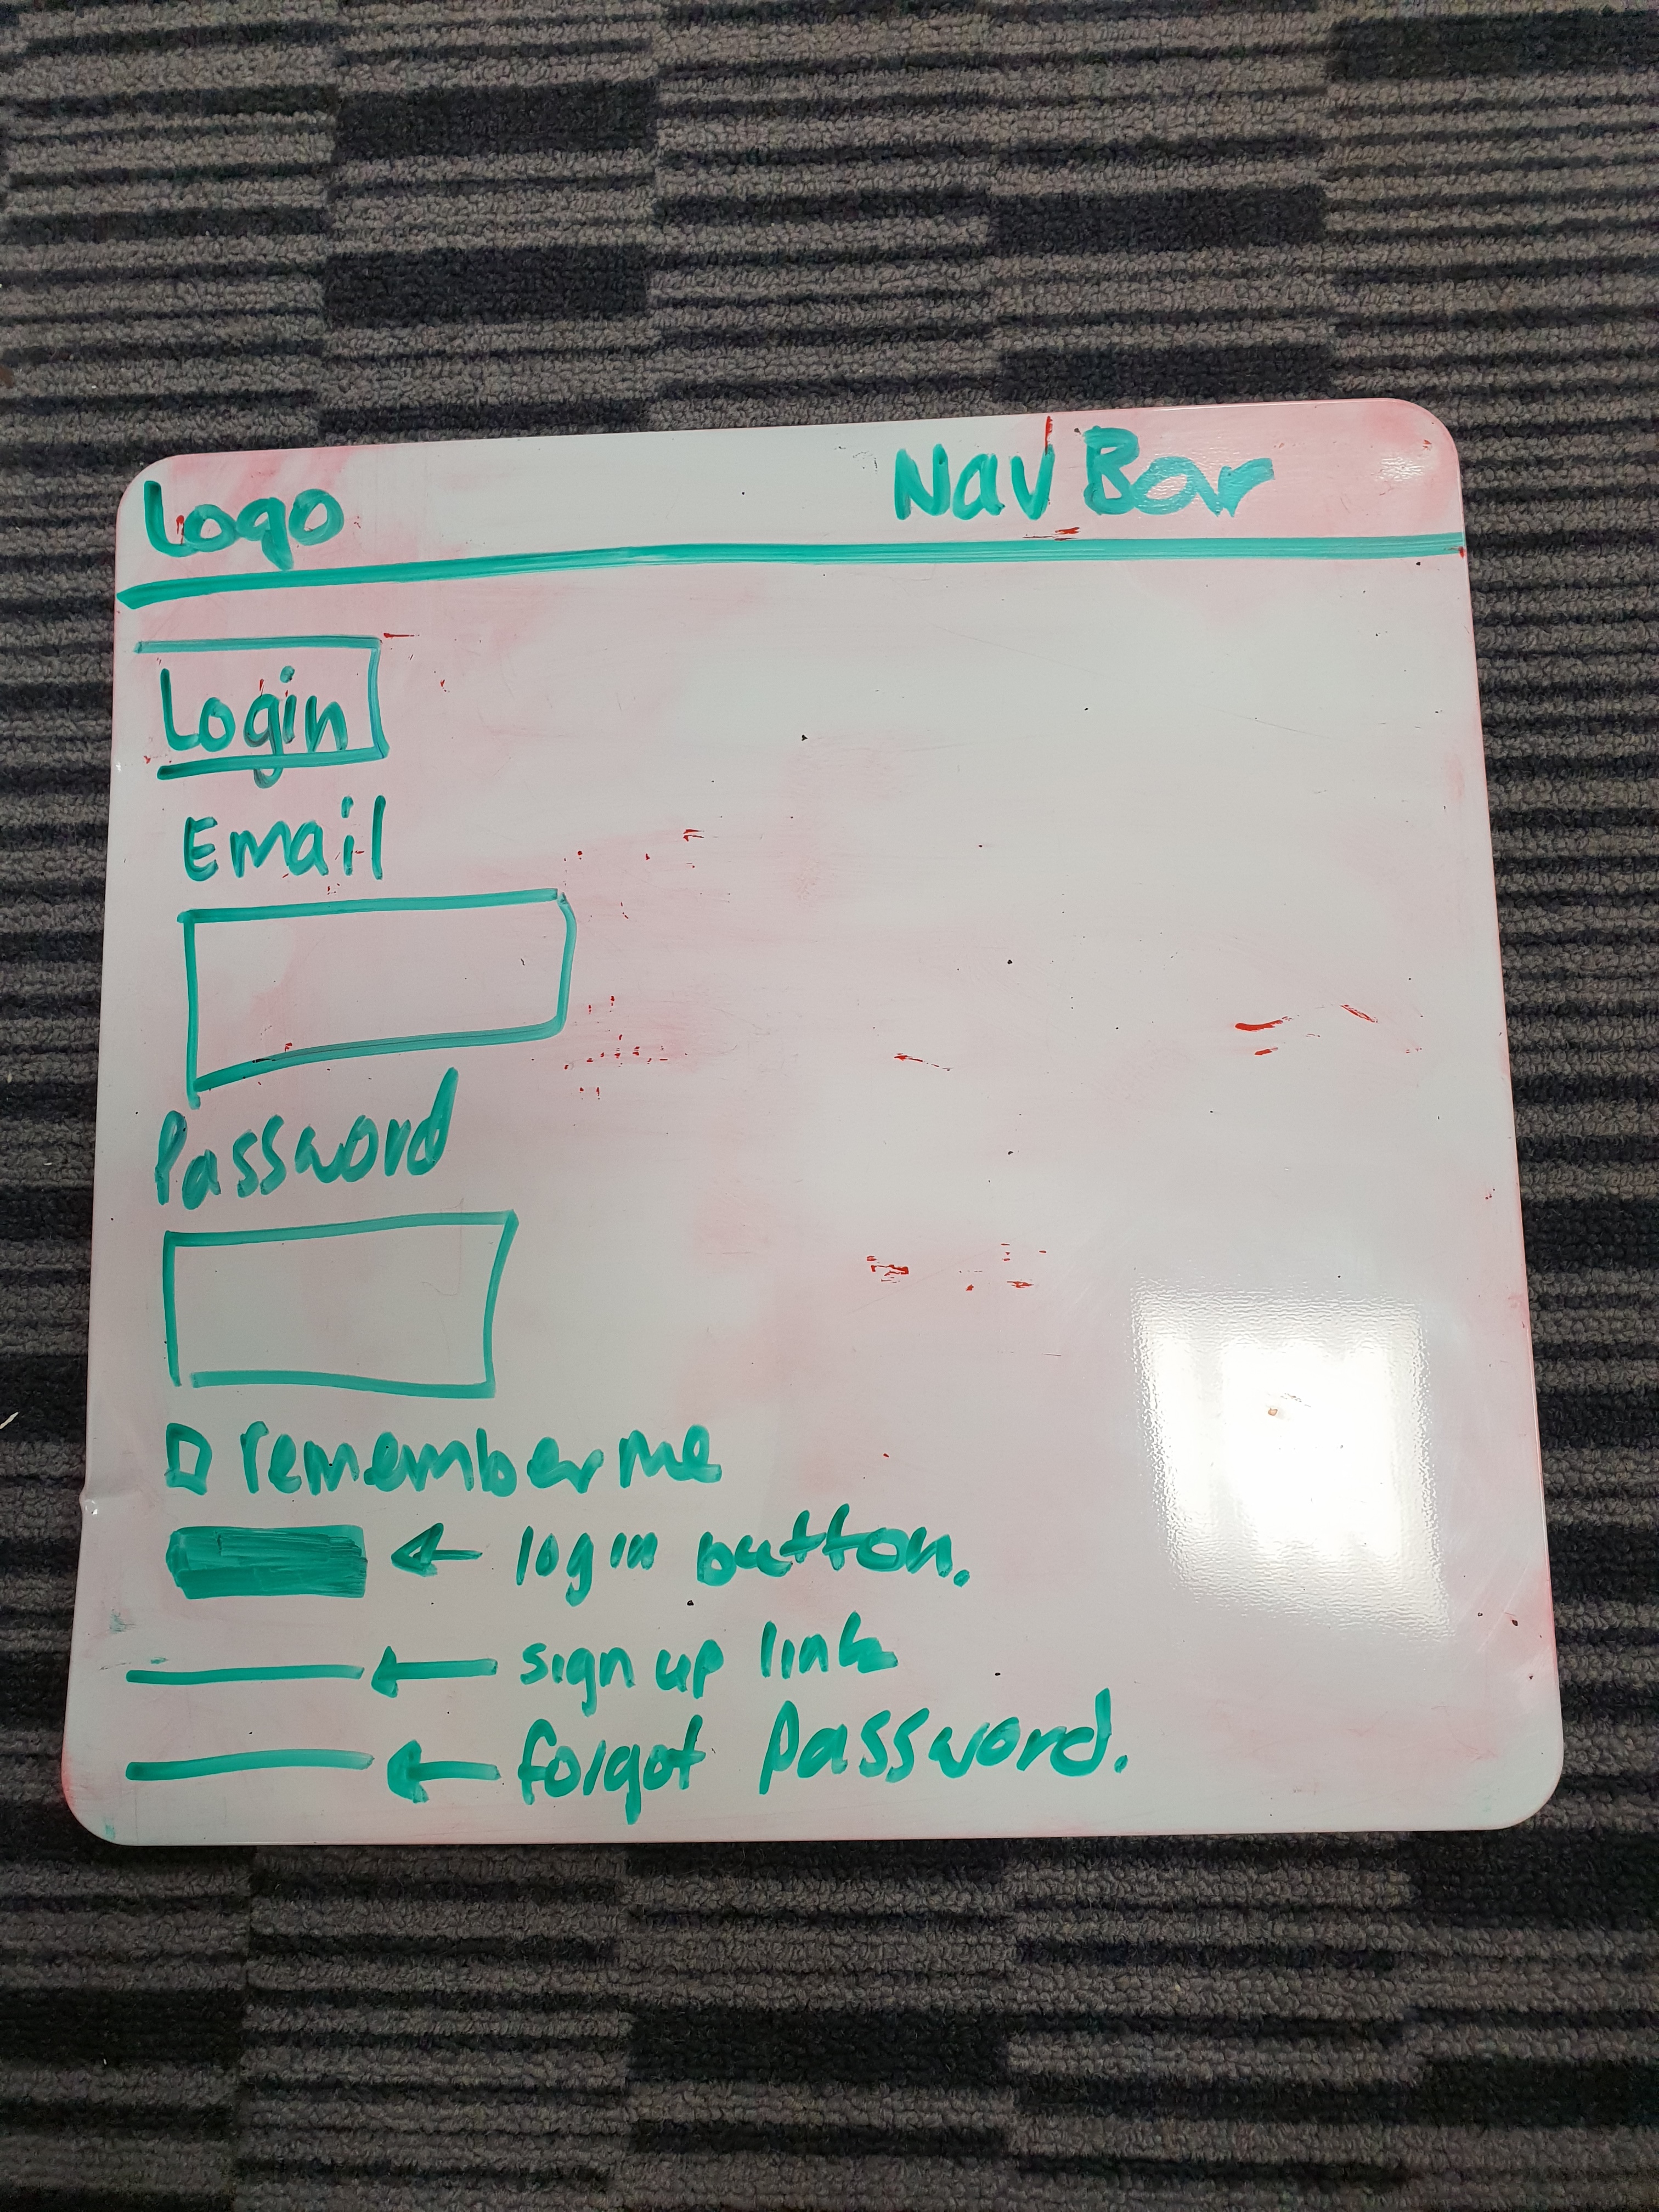 Logo
Nav Bar
Login
Email
Password
remember me
login button.
sign up link
forgot password.